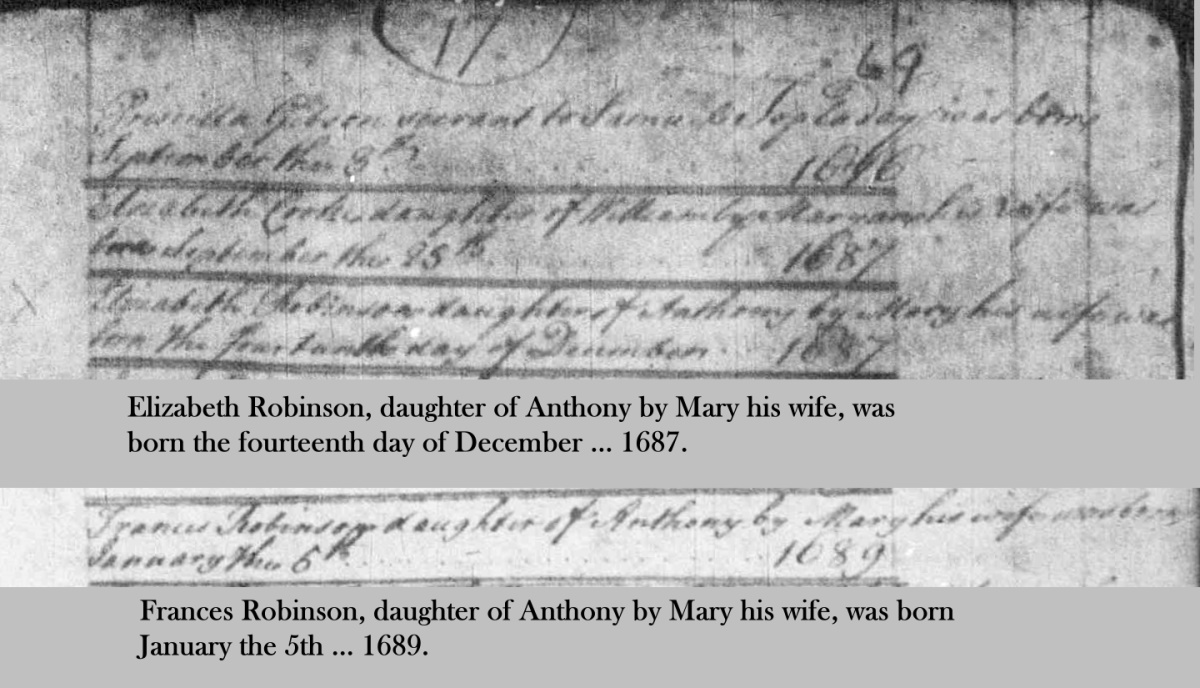 17
69
Priscilla Gibson servant to was born
September the 8th
Elizabeth Cooke daughter of William by his wife was
born September the 25th 1687
Elizabeth Robinson daughter of Anthony by Mary his wife was
born the fourteenth day of December 1687
Elizabeth Robinson, daughter of Anthony by Mary his wife, was
born the fourteenth day of December ... 1687.
Frances Robinson daughter of Anthony by Mary his wife was born
January the 5th 1689
Frances Robinson, daughter of Anthony by Mary his wife, was born
January the 5th ... 1689.